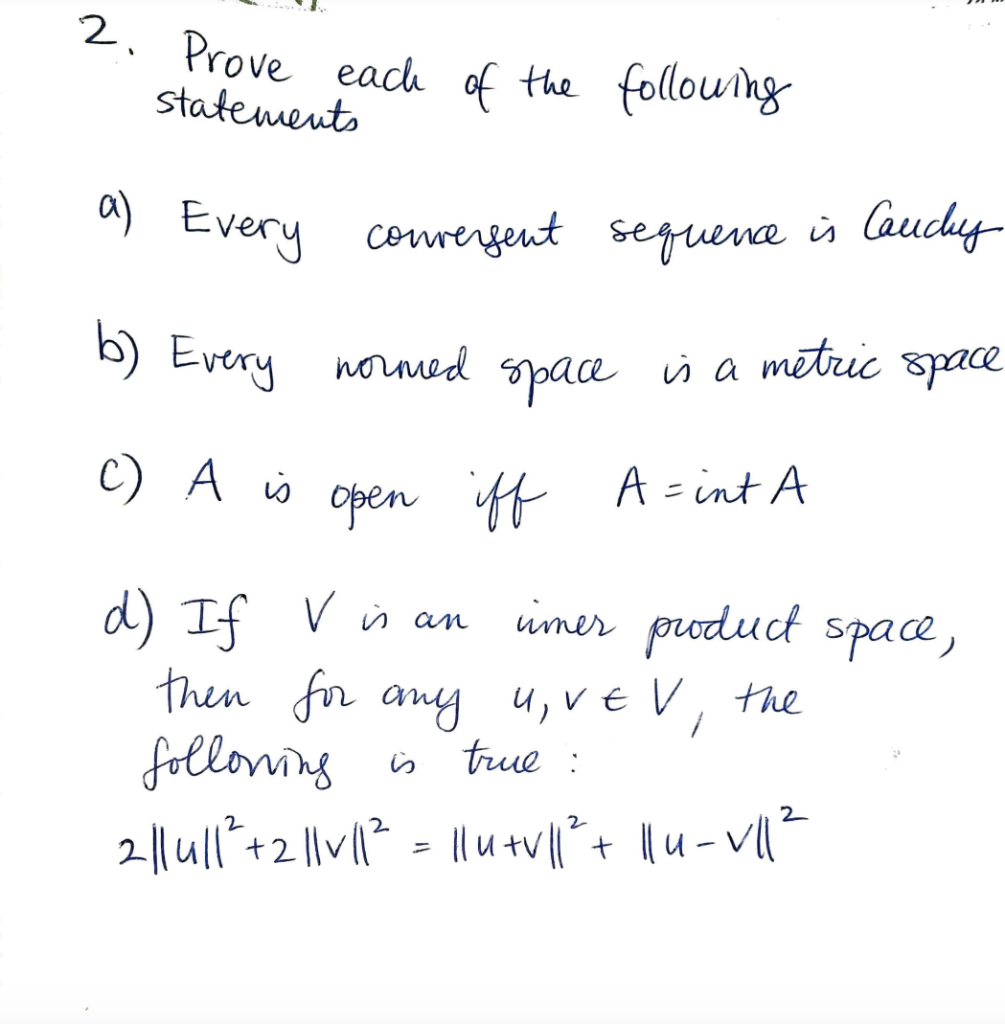 2. Prove each of the following
statements
a) Every convergent sequence is Cauchy
b) Every normed space is a metric space
c) A is open iff A = int A
d) If V is an inner product space,
then for any u, v ∈ V, the
following is true :
2||u||² + 2||v||² = ||u+v||² + ||u-v||²